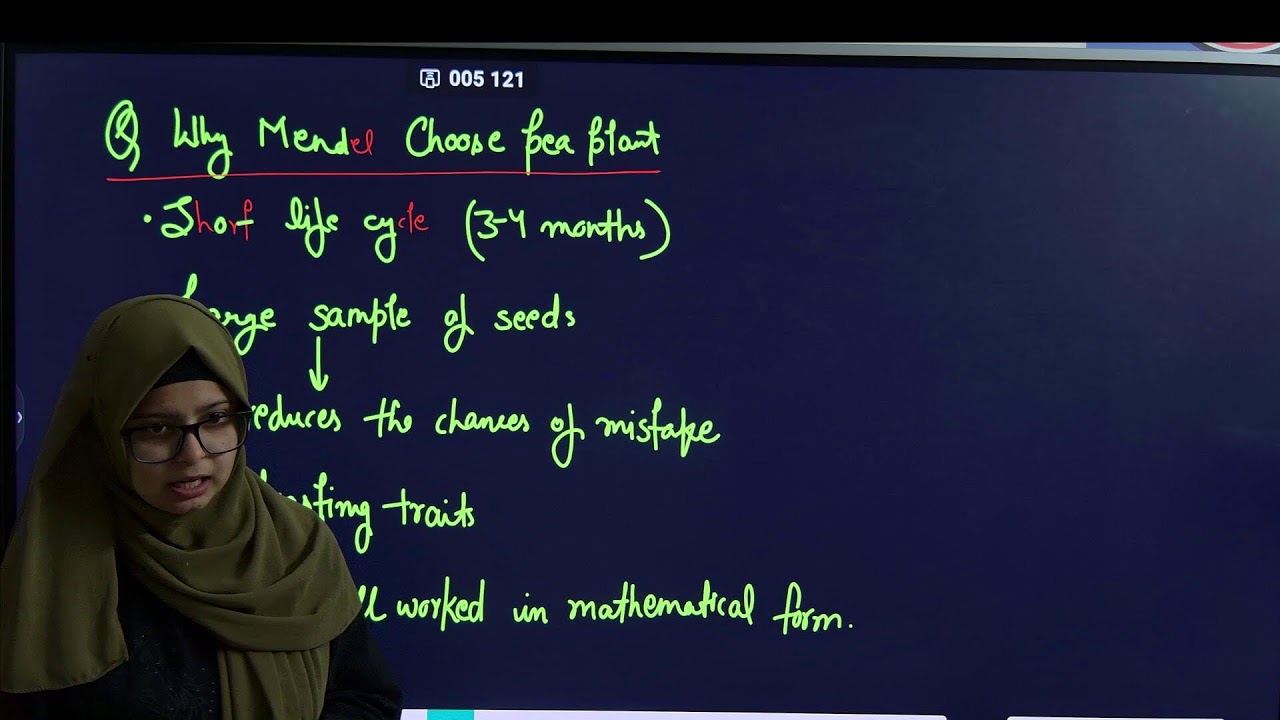 005 121
Q Why Mendel Choose pea plant
• Short life cycle (3-4 months)
Large sample of seeds
↓
reduces the chances of mistake
traits
worked in mathematical form.